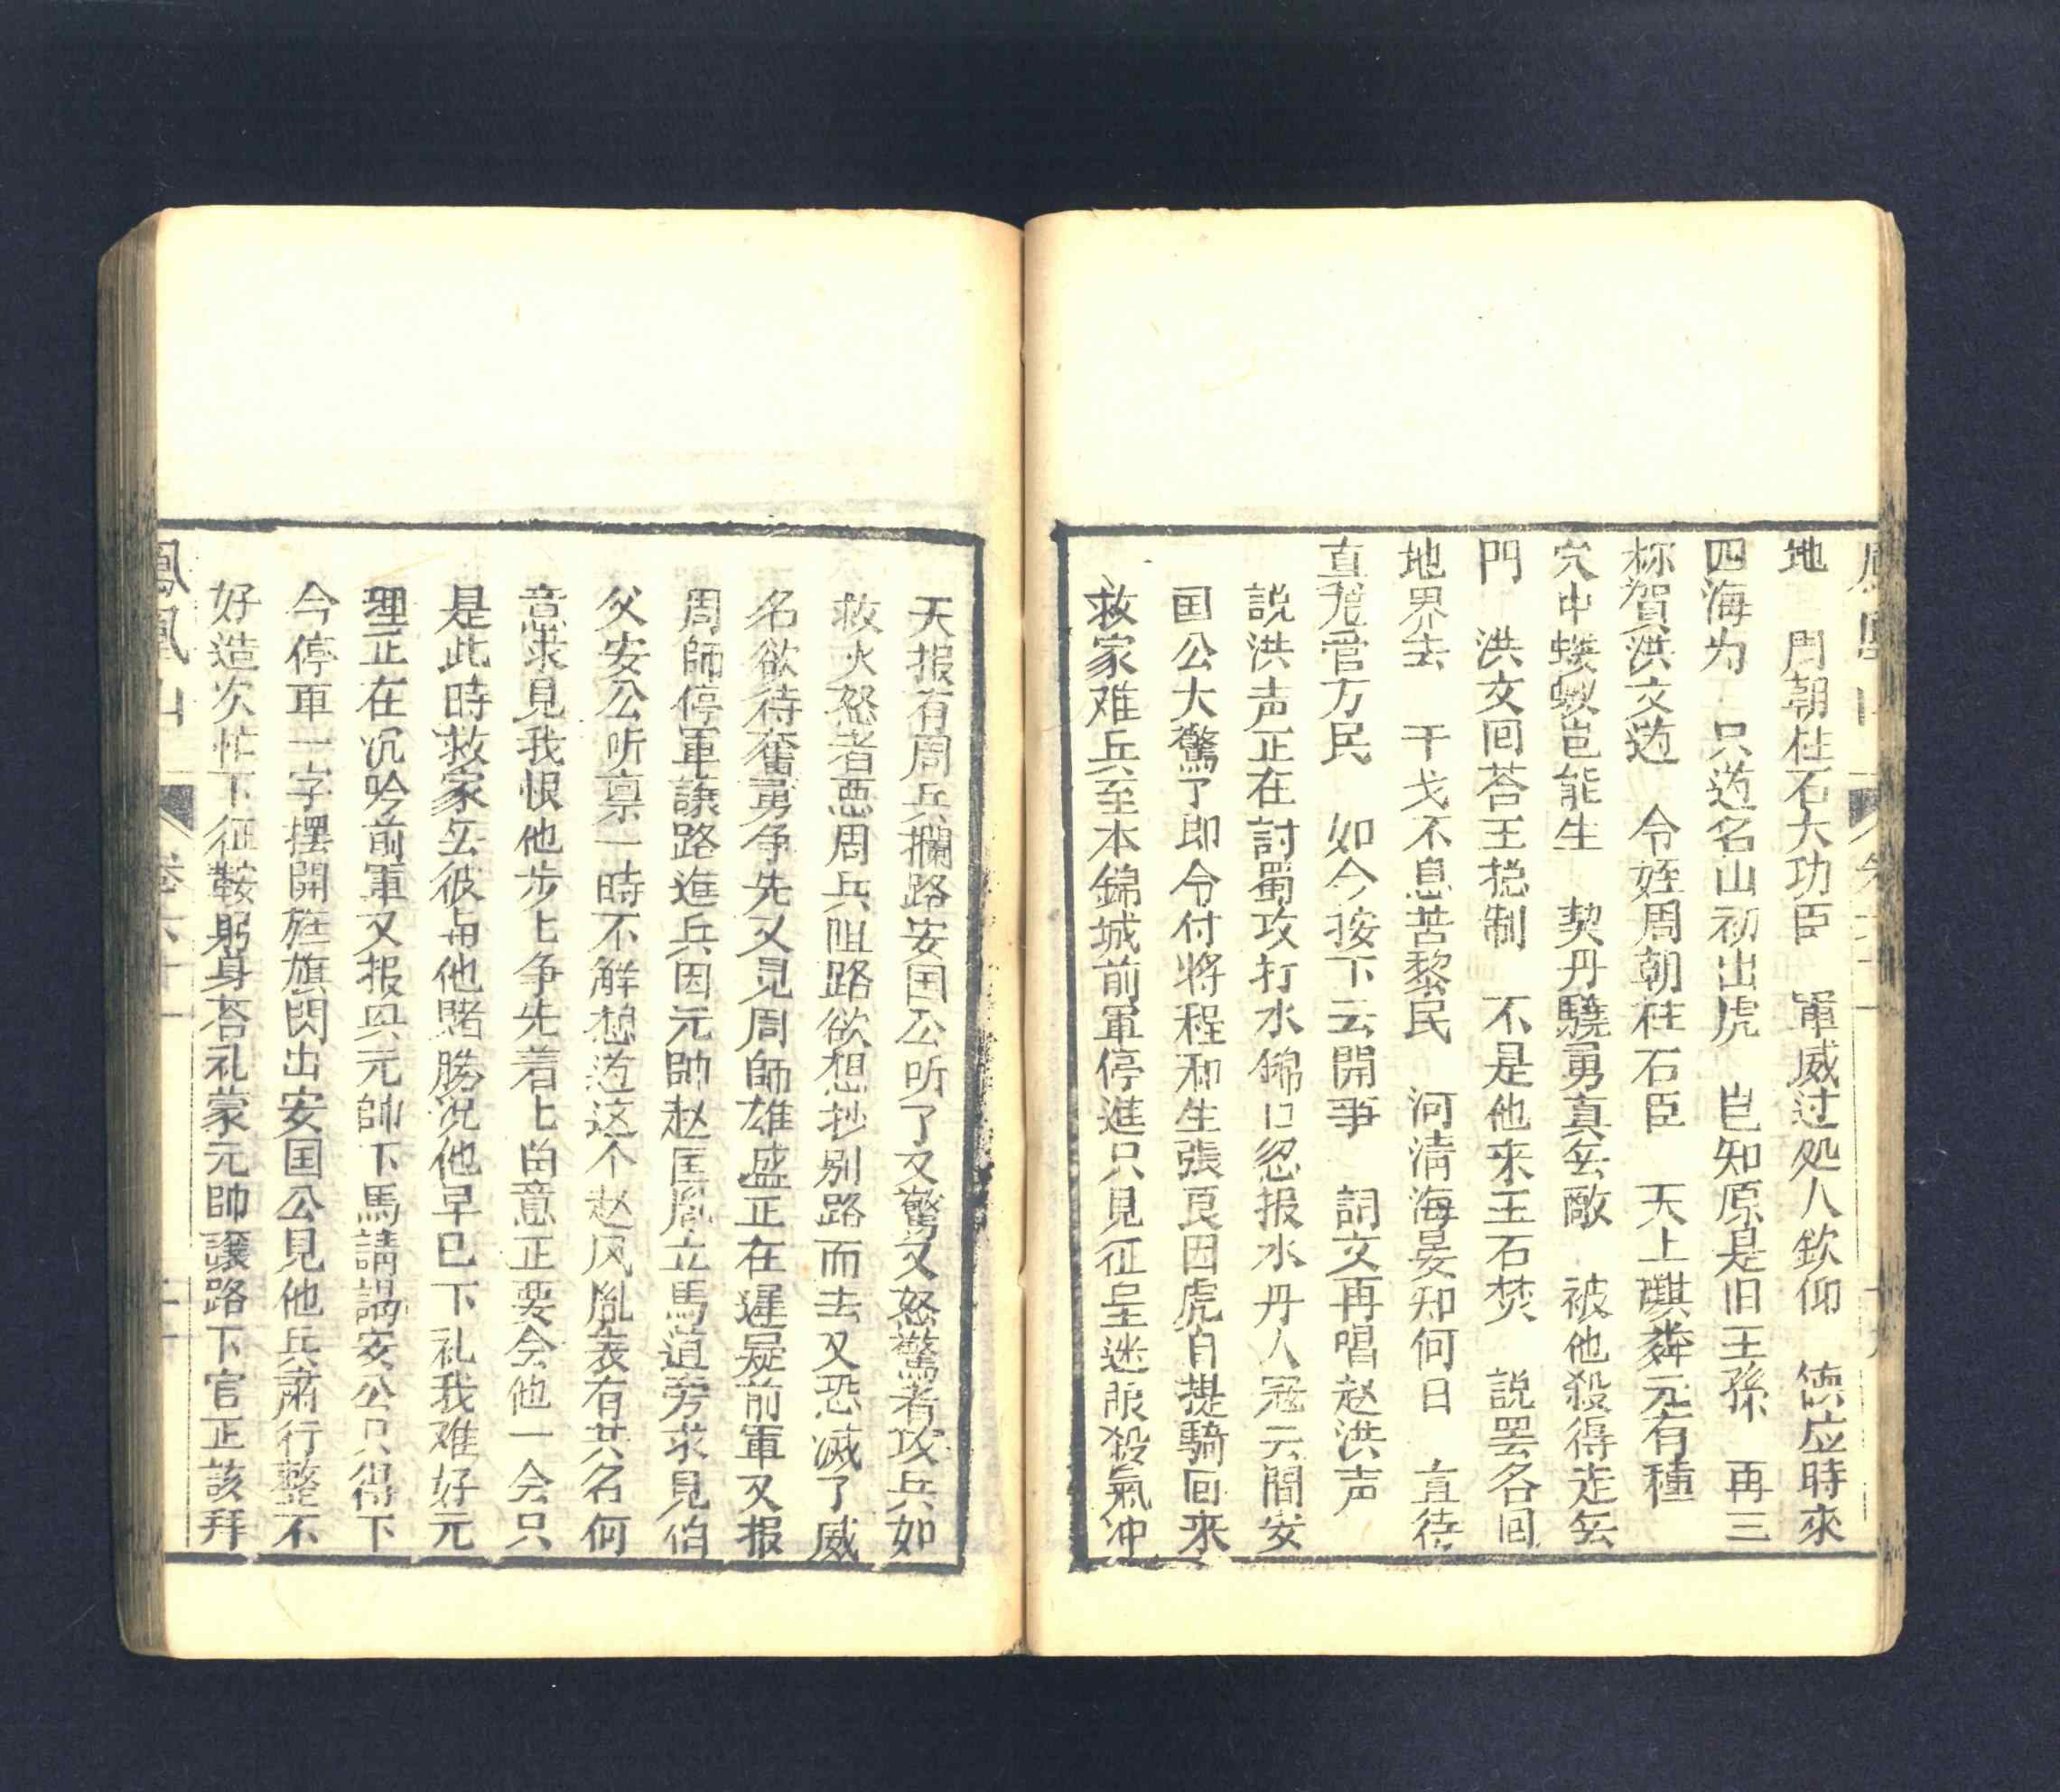 地 周朝柱石大功臣 軍威过处人欽仰 德应時來
四海为 只道名山初出虎 岂知原是旧王孫 再三
称賀洪文道 令姪周朝柱石臣 天上麒麟元有種
穴中蝼蚁岂能生 契丹驍勇真無敵 被他殺得走無
門 洪文回荅王挽制 不是他來玉石焚 説罢各回
地界去 干戈不息苦黎民 河清海晏知何日 直待
如今按下云開事 詞文再唱赵洪声
説洪声正在討蜀攻打水錦口忽报水丹人冦云間安
国公大驚了即令付將程和生張良因虎自提騎回來
救家难兵至本錦城前軍停進只見征呈迷眼殺氣冲
天报有周兵攔路安国公听了又驚又怒驚者攻兵如
救火怒者惡周兵阻路欲想抄别路而去又恐滅了威
名欲待奮勇争先又見周師雄盛正在遲疑前軍又报
周師停軍讓路進兵因元帥赵匡胤立馬道旁求見伯
父安公听禀一時不解想道这个赵风胤表有其名何
意求見我恨他步上争先着上留意正要会他一会只
是此時救家去彼与他賭勝况他早已下礼我难好元
理正在沉吟前軍又报與元帥下馬請謁安公只得下
令停軍一字摆開旌旗閃出安国公見他兵肅行整不
好造次忙下征鞍躬身荅礼蒙元帥讓路下官正該拜
鳳凰山 卷六十一 二十